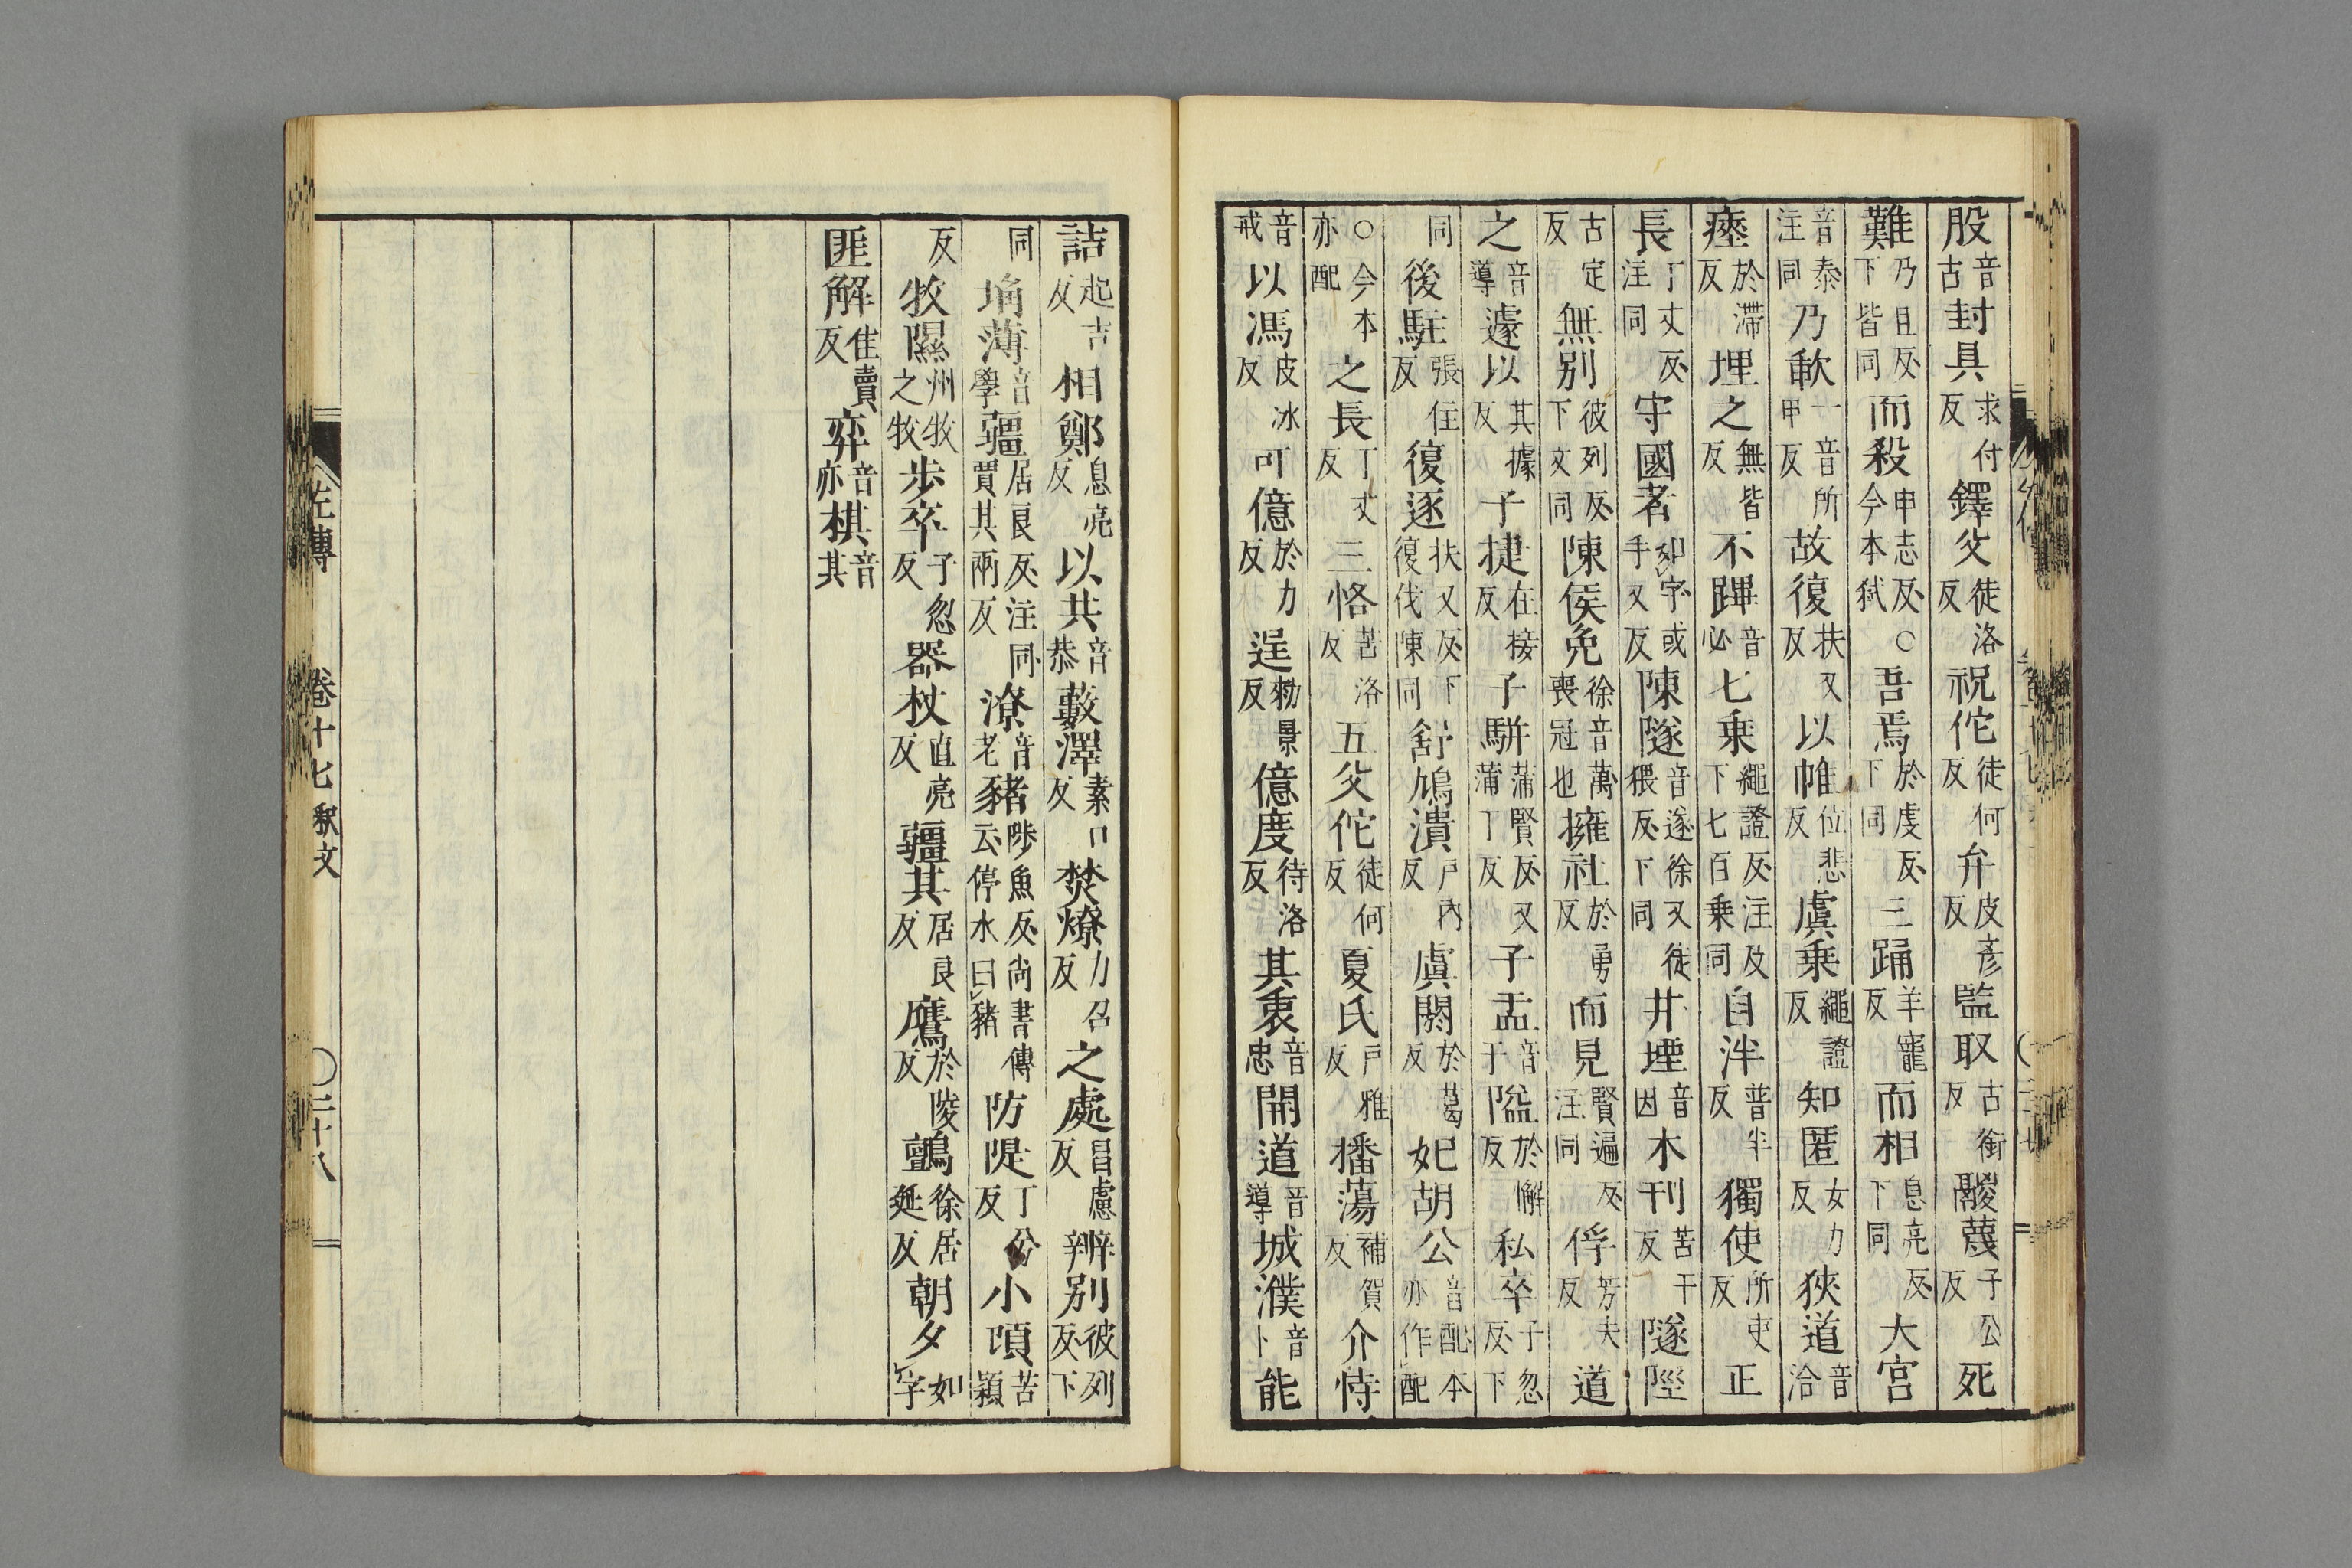 股音古封具求付反鐸父徒洛反祝佗徒何反弁皮彥反監取古銜反鬷蔑子公反死
難乃旦反下皆同而殺申志反今本弑○吾焉於虔反下同三踊羊寵反而相息亮反下同大宮
音泰注同乃歃一音所甲反故復扶又反以帷位悲反虞乘繩證反知匿女力反狹道音洽
瘞於滯反埋之無皆反不蹕音必七乘繩證反注及下七百乘同自泮普半反獨使所吏反正
長丁丈反注同守國者如字或手又反陳隧音遂徐又徒猥反下同井堙音因木刊苦干反隧陘
古定反無別彼列反下文同陳侯免徐音萬喪冠也擁社於勇反而見賢遍反注同俘芳夫反道
之音導遽以其據反子捷在接反子駢蒲賢反又蒲丁反子盂音于隘於懈反私卒子忽反下
同後駐張住反復逐扶又反下復伐陳同舒鳩潰戶內反虞閼於葛反妃胡公音配本亦作配
○今本亦配之長丁丈反三恪苦洛反五父佗徒何反夏氏戶雅反播蕩補賀反介恃
音戒以馮皮冰反可億於力反逞勑景反億度待洛反其衷音忠開道音導城濮音卜能
詰起吉反相鄭息亮反以共音恭藪澤素口反焚燎力召反之處昌慮反辨別彼列反下
同埆薄音學疆居良反注同賈其兩反潦音老豬陟魚反尚書傳云停水曰豬防隄丁兮反小頃苦穎
反牧隰州牧之牧步卒子忽反器杖直亮反疆其居良反鷹於陵反鸇徐居延反朝夕如字
匪解隹賣反弈音亦棋音其
左傳 卷十七 釈文 ○二十八